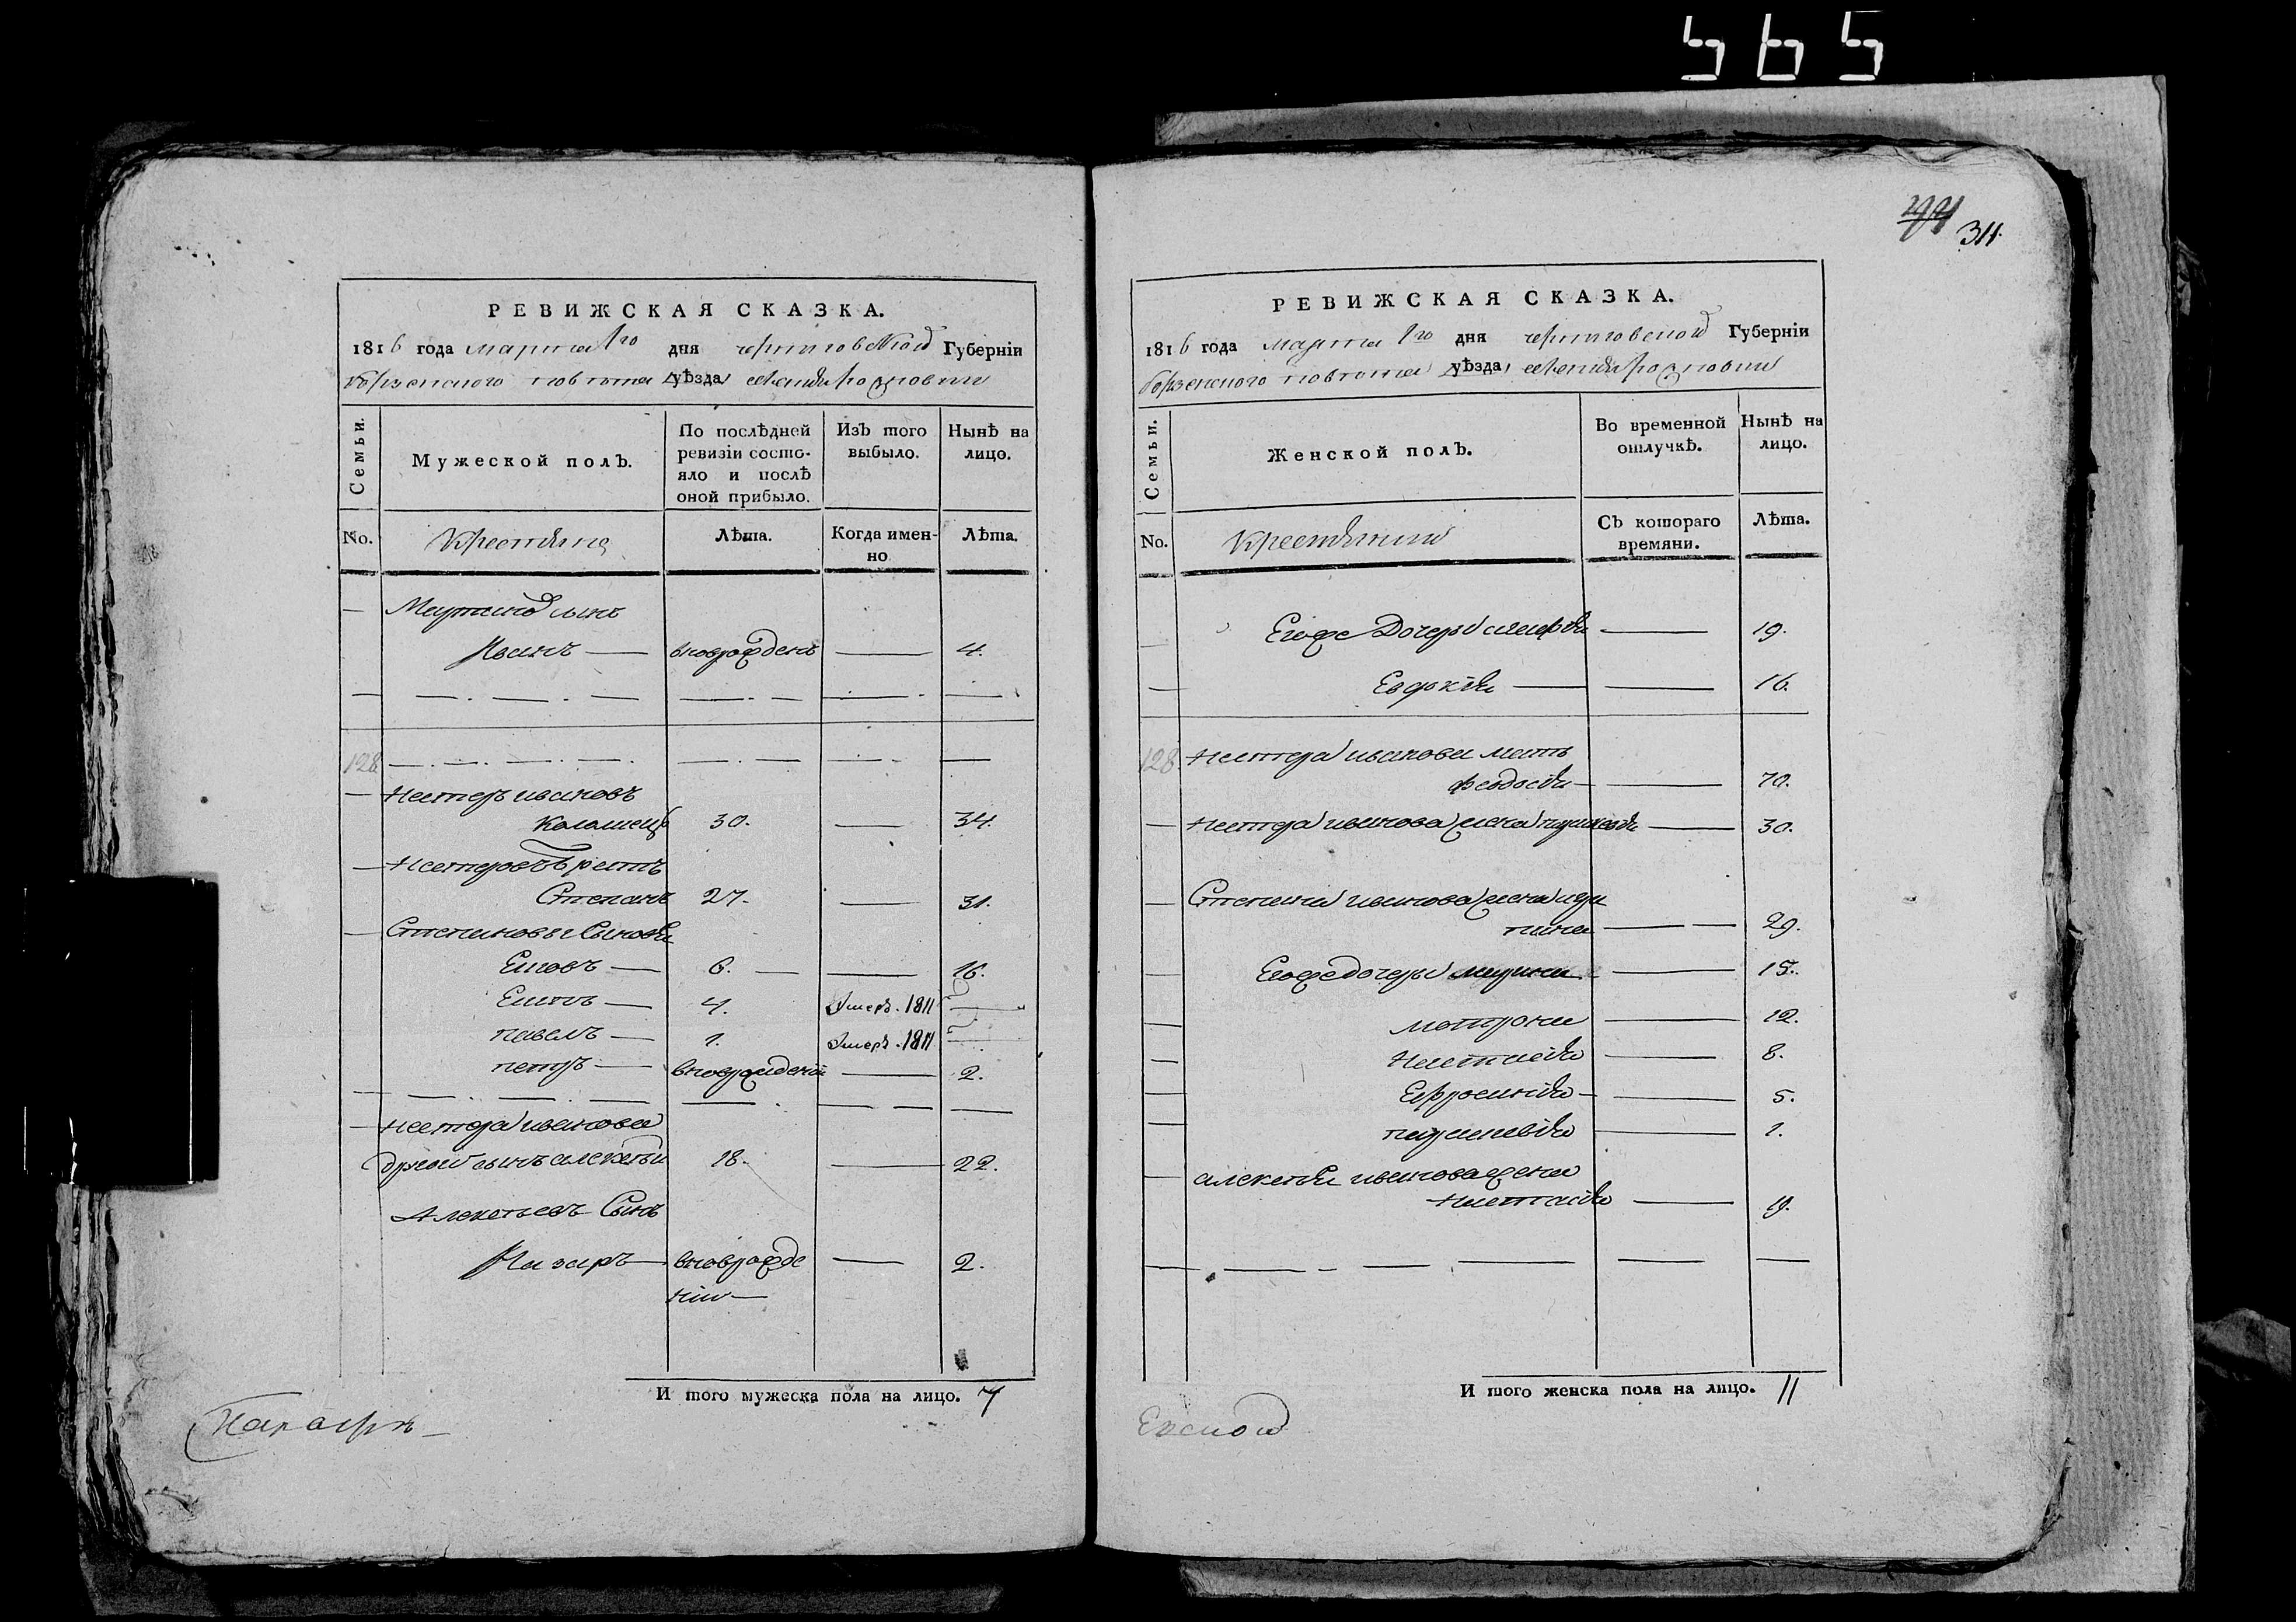 565
311.
РЕВИЖСКАЯ СКАЗКА.
1816 года марта 1го дня черниговской Губерніи
борзенского повета уѣзда,
Семьи.
Мужеской полъ.
По послѣдней ревизіи состо-
яло и послѣ
оной прибыло.
Изъ того
выбыло.
Нынѣ на
лицо.
No.
Крестяне
Лѣта.
Когда имен-
но
Лѣта.
— сынъ
Иванъ — вноврожденъ — 4.
128
Нестеръ ивановъ
30. — 34.
Нестеровъ братъ
Степанъ 27. — 31.
Степановы Сыновя
6. — 16.
4. Умеръ. 1811
павелъ — 1. Умеръ. 1811
петръ — вноврожденій — 2.
Нестера иванова
другой сынъ алексѣй 18. — 22.
Алексѣевъ Сынъ
Назаръ — вноврожде — 2.
ній —
И того мужеска пола на лицо. 7
РЕВИЖСКАЯ СКАЗКА.
1816 года марта 1го дня черниговской Губерніи
борзенского повета уѣзда,
Семьи.
Женской полъ.
Во временной
отлучкѣ.
Нынѣ на
лицо.
No.
Крестянки
Съ котораго
времяни.
Лѣта.
Егоже Дочери — 19.
Евдокія — 16.
128. Нестера иванова мать
феодосія — 70.
Нестера иванова жена — 30.
Степана иванова жена
— 29.
Егоже дочери марина — 15.
мотрона — 12.
Настасія — 8.
Ефросинія — 5.
параскевія — 1.
алексѣя иванова жена
Настасія — 19.
И того женска пола на лицо. 11